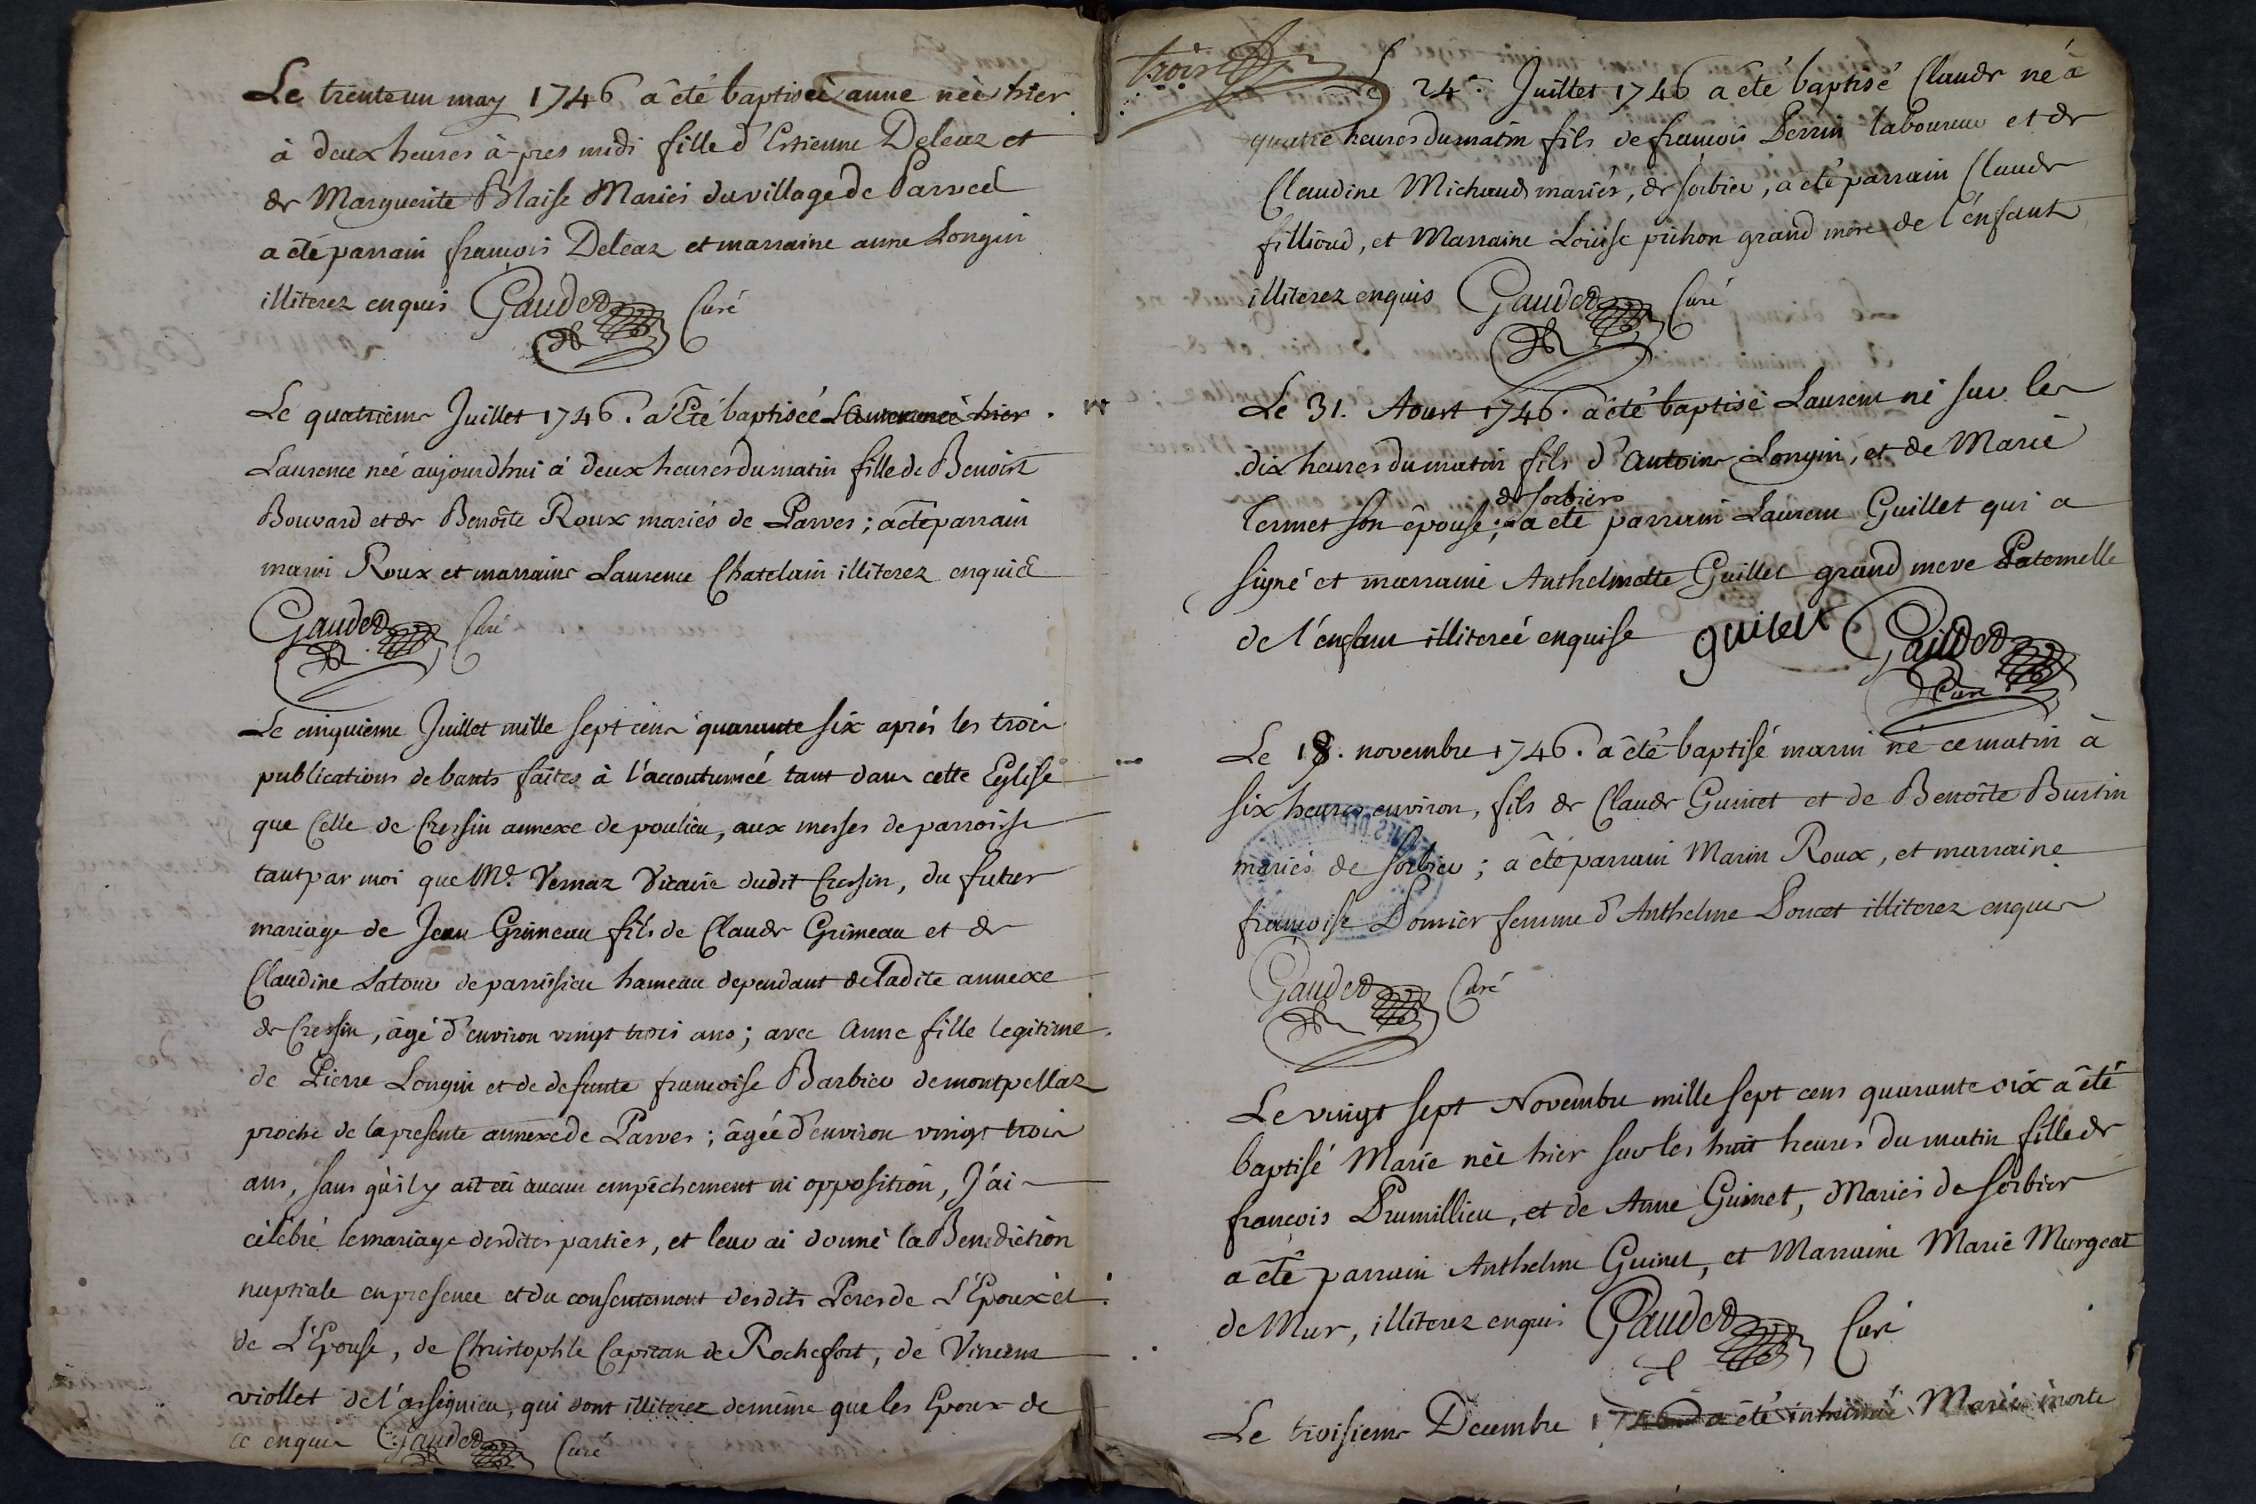 Le trente un may 1746 a êté baptiseé anne neé hier
à deux heures à-pres midi fille d'Estienne Deleaz et
de Marguerite Blaise Mariés du village de Parves
a êté parrain françois Deleaz et marraine anne Longin
illiterez enquis Gaudet Curé
Le quatrieme Juillet 1746. a Eté baptiseé
Laurence neé aujourdhui à deux heures du matin fille de Benoist
Bouvard et de Benoîte Roux mariés de Parves ; a êté parrain
marin Roux et marraine Laurence Chatelain illiterez enquis
Gaudet Curé
Le cinquieme Juillet mille sept cens quarante six aprés les trois
publications de bants faites à l'accoutumeé tant dans cette Eglise
que Celle de Cressin annexe de poulieu, aux messes de parroisse
tant par moi que Mr. Vernaz Vicaire dudit Cressin, du futur
mariage de Jean Grimeau fils de Claude Grimeau et de
Claudine Latour de parrissieu hameau dependant de ladite annexe
de Cressin, âgé d'environ vingt trois ans ; avec Anne fille legitime
de Pierre Longin et de defunte francoise Barbier de montpellaz
proche de la presente annexe de Parves ; âgeé d'environ vingt trois
ans, sans qu'il y ait eü aucun empêchement ni opposition, J'ai
célébré le mariage desdites parties, et leur ai donné la Benediction
nuptiale en presence et du consentement desdits Peres de L'Epoux et
de L'Epouse, de Christophle Capitan de Rochefort, de Vincent
viollet de l'assignieu, qui sont illiterez demême que les Epoux de
ce enquis Gaudet Curé
trois
Le 24e. Juillet 1746 a êté baptisé Claude né à
quatre heures du matin fils de francois Perrin laboureur et de
Claudine Michaud mariés, de sorbier, a êté parrain Claude
fillioud, et Marraine Louise prihon grand mére de l'énfant
illiterez enquis Gaudet Curé
Le 31. Aoust 1746. a êté baptisé Laurent né sur les
dix heures du matin fils d'Antoine Longin, et de Marie
de sorbier
Termet son êpouse ; a été parrain Laurent Guillet qui a
signé et marraine Anthelmette Guillet grand mere Paternelle
de l'énfant illitereé enquise guilet Gaudet
Curé
Le 18. novembre 1746. a êté baptisé marin né ce matin à
six heures environ, fils de Claude Guinet et de Benoîte Burtin
mariés de sorbier ; a êté parrain Marin Roux, et marraine
francoise Dornier femme d'Anthelme Poncet illiterez enquis
Gaudet Curé
Le vingt sept Novembre mille sept cens quarante six a êté
baptisé Marie neé hier sur les huit heures du matin fille de
françois Prumillieu, et de Anne Guinet, Mariés de sorbier
a êté parrain Anthelme Guinet, et Marraine Marie Murgeat
de Mur, illiterez enquis Gaudet Curé
Le troisieme Decembre a êté inhumé Marie morte